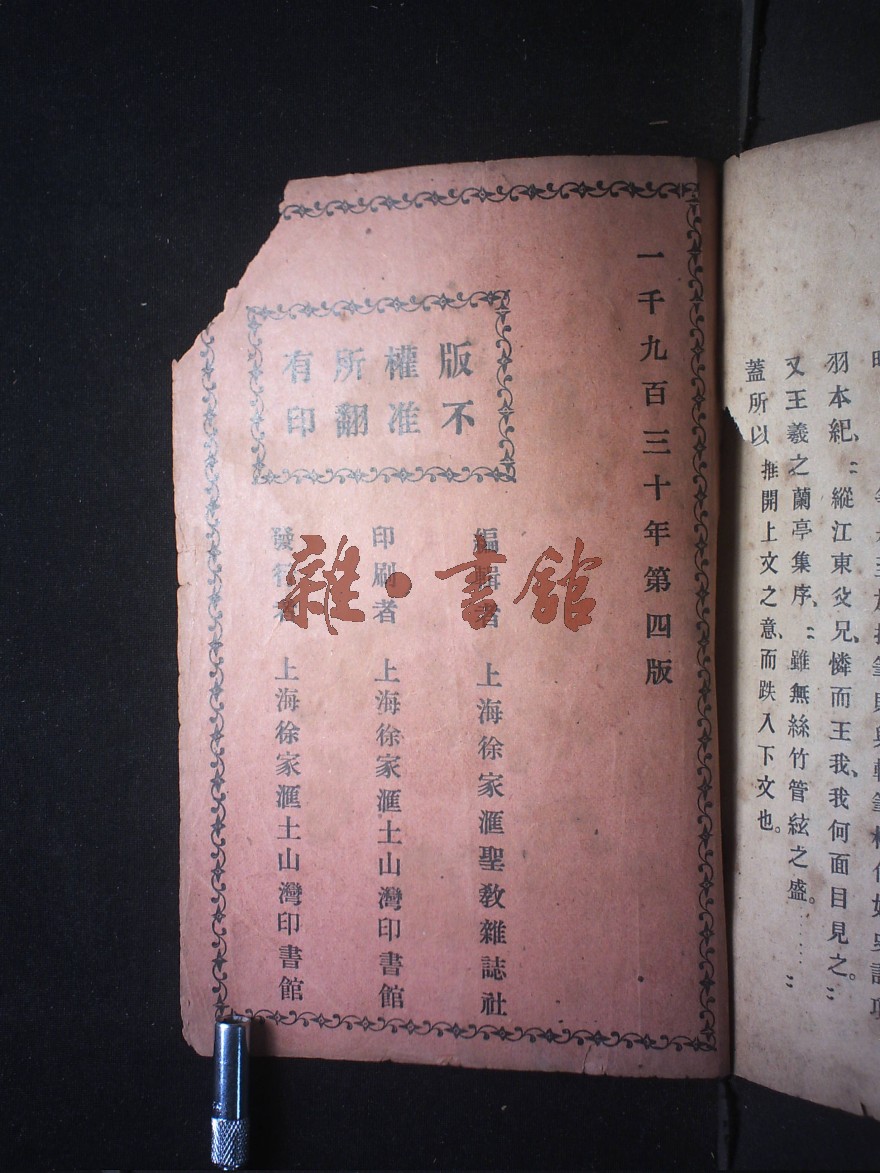 筆則與轉筆相似如史記項
羽本紀、:縱江東父兄、憐而王我、我何面目見之。:
又王羲之蘭亭集序、:雖無絲竹管絃之盛。……:
蓋所以推開上文之意、而跌入下文也。
一千九百三十年第四版
版權所有
不准翻印
編輯者 上海徐家滙聖教雜誌社
印刷者 上海徐家滙土山灣印書館
發行者 上海徐家滙土山灣印書館
雜·書館